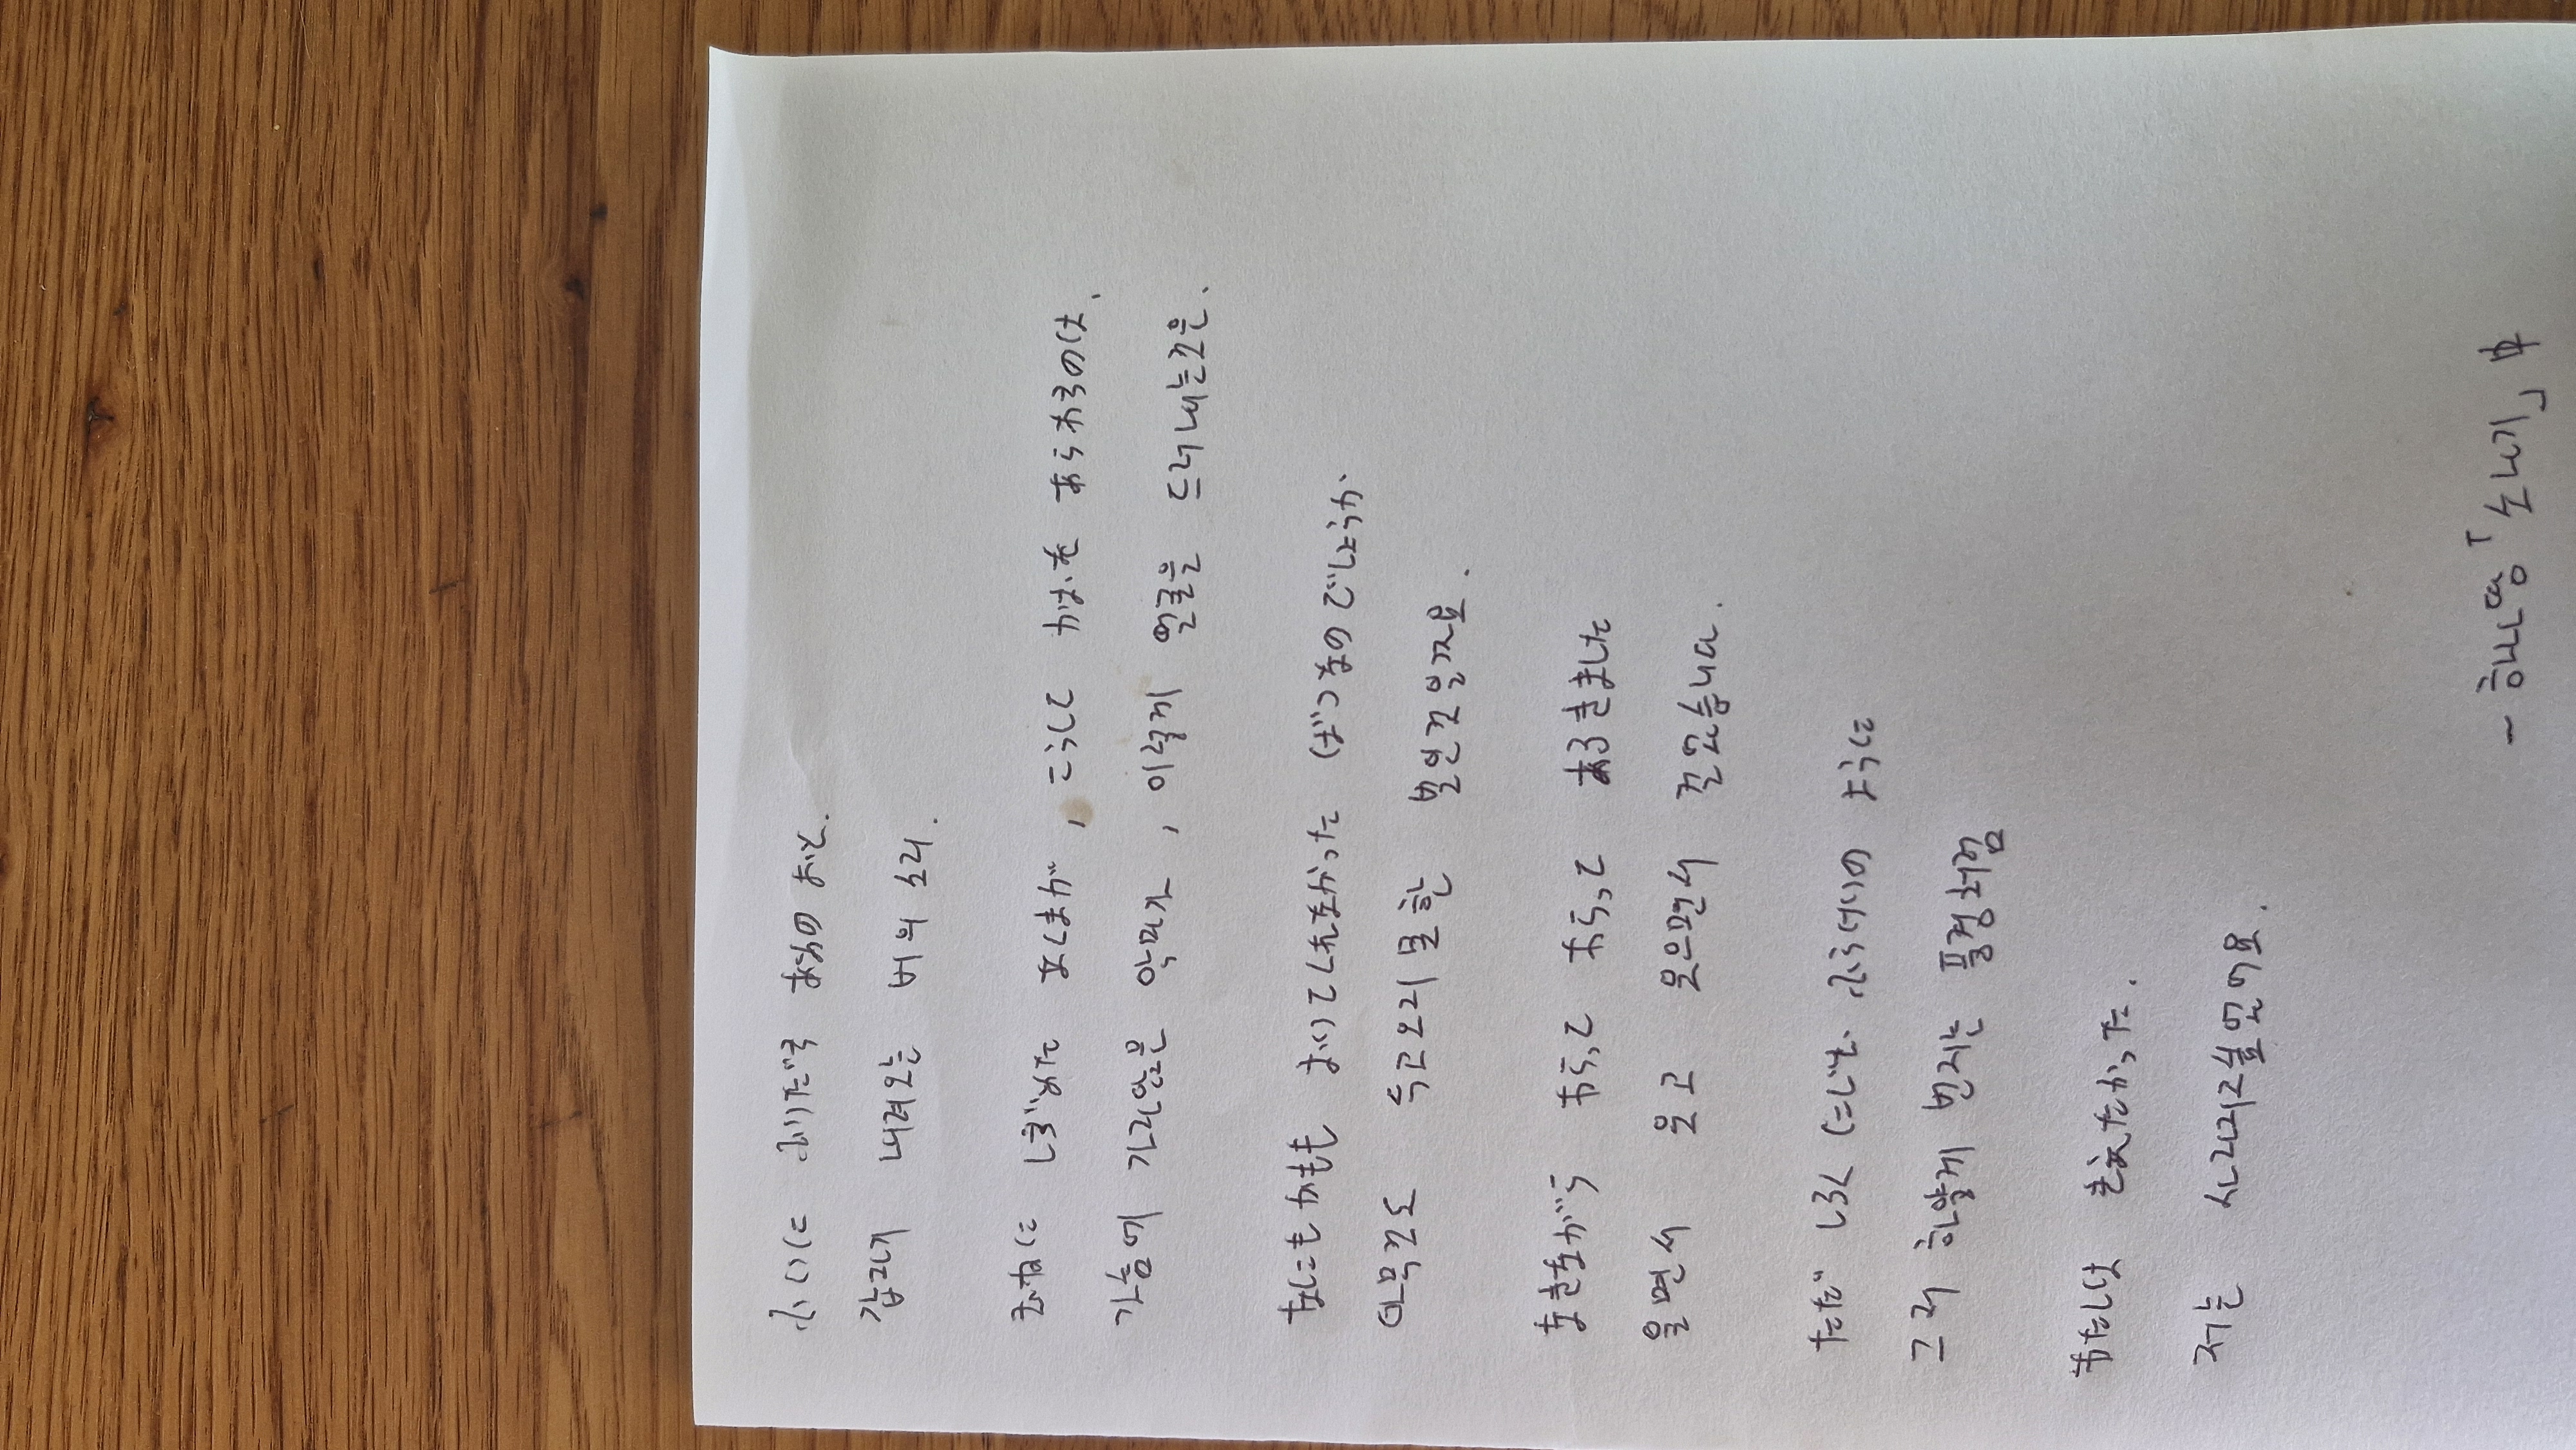 ふいに ふりだす あめの おと.
갑자기 내려오는 비의 소리.
むねに しずめた あくまが, こうして かおを あらわるのは.
가슴에 가라앉은 악마가, 이렇게 얼굴을 드러내는것은.
なにもかも おいてくれなかった ばつなのでしょうか.
아무것도 두고오지 못한 벌인것일까요.
なきながら わらって わらって あるきました
울면서 웃고 웃으면서 걸었습니다.
ただ しろく にじむ ふうけいの ように
그저 하얗게 번지는 풍경처럼
わたしは きえたかった.
저는 사라지고싶었어요.
- 하나땅 「소나기」 中